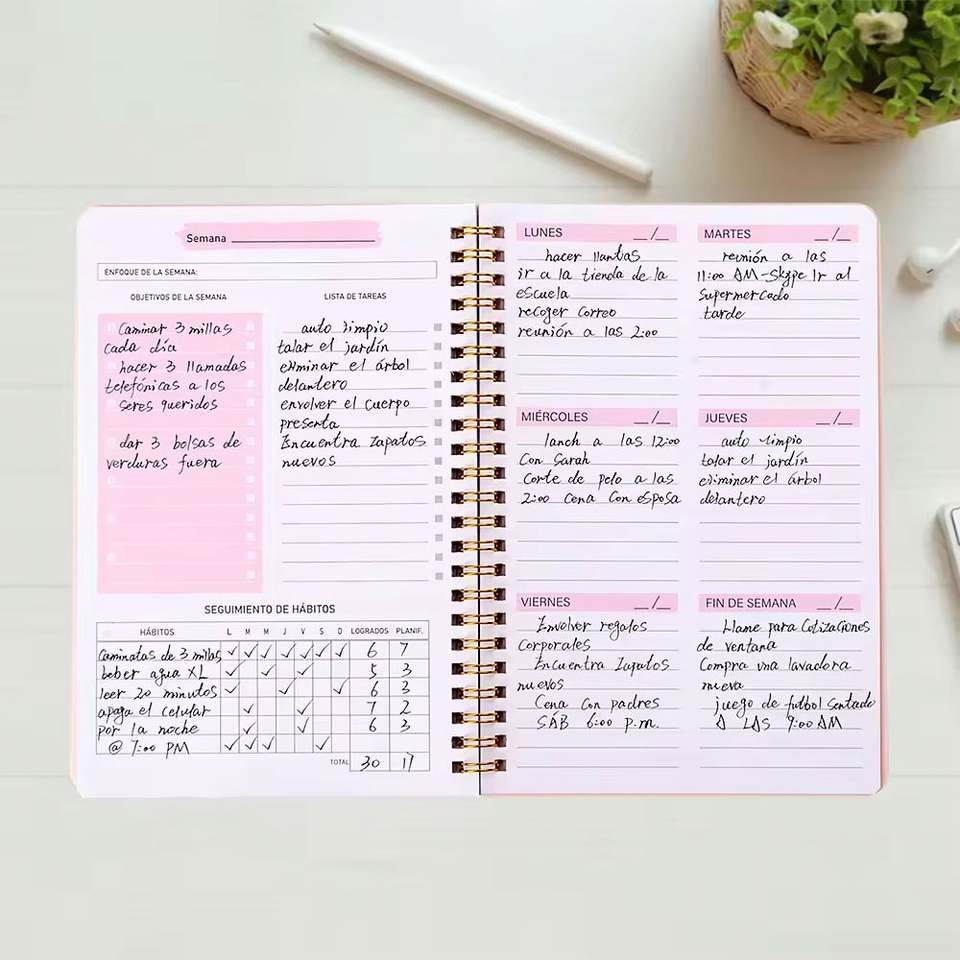 Semana
ENFOQUE DE LA SEMANA:
OBJETIVOS DE LA SEMANA
Caminar 3 millas
cada día
hacer 3 llamadas
telefónicas a los
seres queridos
dar 3 bolsas de
verduras fuera
LISTA DE TAREAS
auto limpio
talar el jardín
eliminar el árbol
delantero
envolver el cuerpo
presenta
Encuentra zapatos
nuevos
SEGUIMIENTO DE HÁBITOS
HÁBITOS L M M J V S D LOGRADOS PLANIF.
Caminatas de 3 millas ✓ ✓ ✓ ✓ ✓ ✓ ✓ 6 7
beber agua XL ✓ ✓ ✓ 5 3
leer 20 minutos ✓ ✓ ✓ 6 3
apaga el celular ✓ ✓ 7 2
por la noche ✓ ✓ 6 3
@ 7:00 PM ✓ ✓ ✓ ✓
TOTAL 30 17
LUNES __/__
hacer llantas
ir a la tienda de la
escuela
recoger correo
reunión a las 2:00
MARTES __/__
reunión a las
11:00 AM-Skype Ir al
supermercado
tarde
MIÉRCOLES __/__
lanch a las 12:00
Con Sarah
Corte de pelo a las
2:00 Cena Con esposa
JUEVES __/__
auto limpio
talar el jardín
eliminar el árbol
delantero
VIERNES __/__
Envolver regalos
corporales
Encuentra Zapatos
nuevos
Cena Con padres
SÁB 6:00 p.m.
FIN DE SEMANA __/__
Llame para Cotizaciones
de ventana
Compra una lavadora
nueva
juego de futbol Sentado
A LAS 9:00 AM